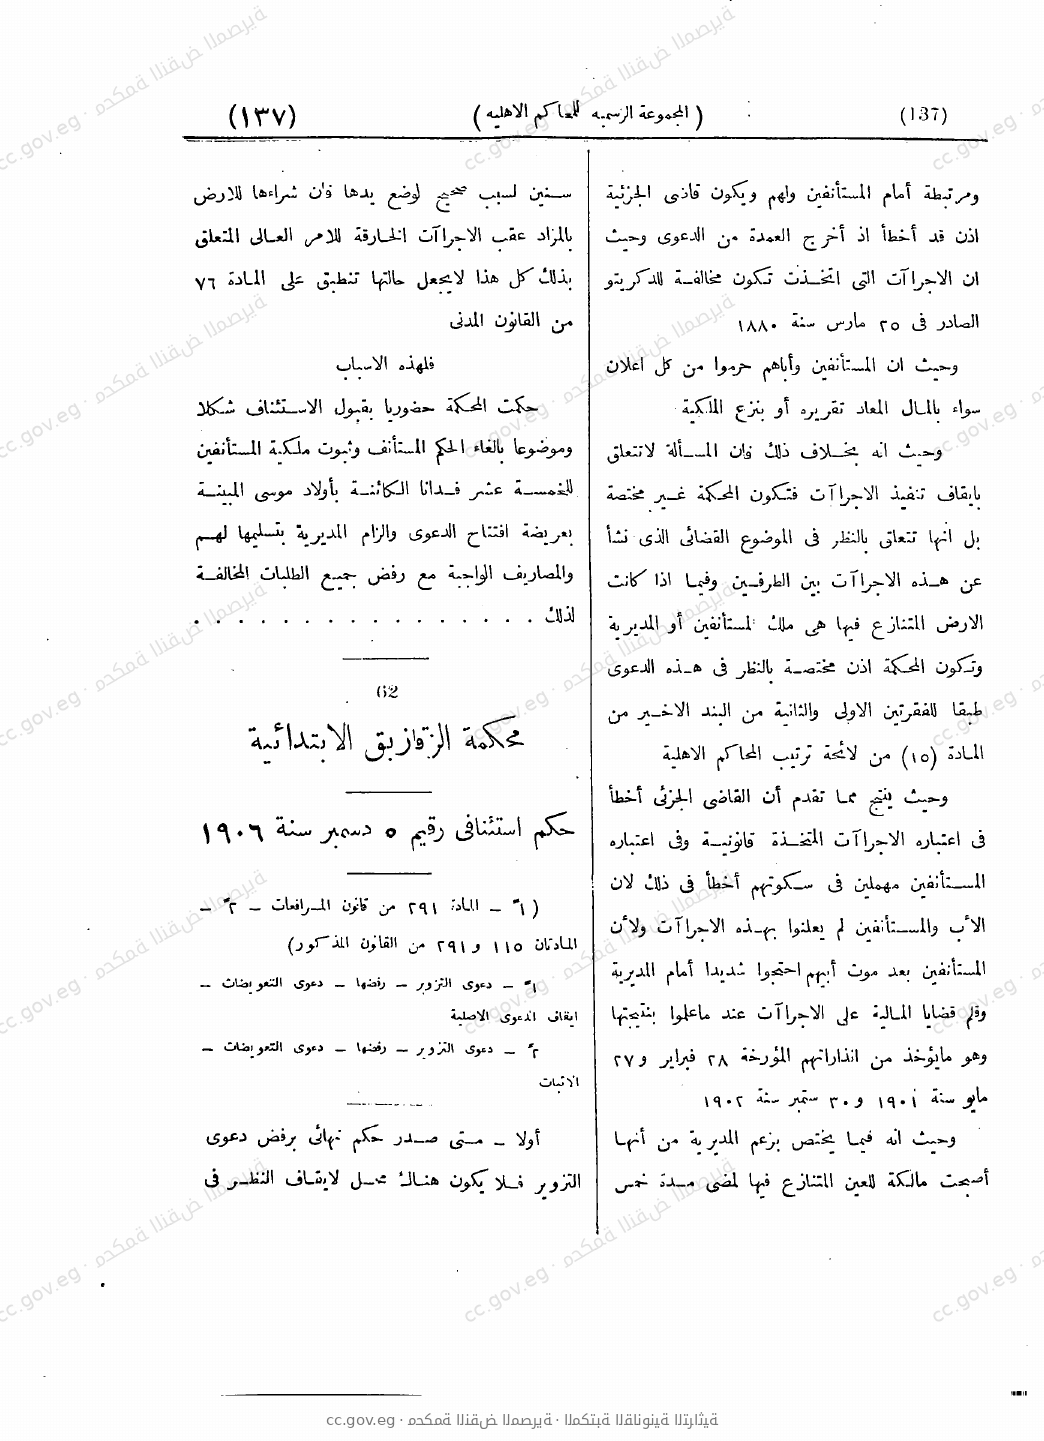 (137)
( المجموعة الرسمية للمحاكم الاهليه )
(١٣٧)
ومرتبطة أمام المستأنفين ولهم ويكون قاضى الجزئية
اذن قد أخطأ اذ أخرج العمدة من الدعوى وحيث
ان الاجراآت التى اتخذت تكون مخالفة للدكريتو
الصادر فى ٢٥ مارس سنة ١٨٨٠
وحيث ان المستأنفين وأباهم حرموا من كل اعلان
سواء بالمال المعاد تقريره أو بنزع الملكية
وحيث انه بخلاف ذلك فان المسألة لا تتعلق
بايقاف تنفيذ الاجراآت فتكون المحكمة غير مختصة
بل انها تتعلق بالنظر فى الموضوع القضائى الذى نشأ
عن هذه الاجراآت بين الطرفين وفيما اذا كانت
الارض المتنازع فيها هى ملك لمستأنفين أو المديرية
وتكون المحكمة اذن مختصة بالنظر فى هذه الدعوى
طبقا للفقرتين الاولى والثانية من البند الاخير من
المادة (١٥) من لائحة ترتيب المحاكم الاهلية
وحيث ينتج مما تقدم أن القاضى الجزئى أخطأ
فى اعتباره الاجراآت المتخذة قانونية وفى اعتباره
المستأنفين مهملين فى سكوتهم أخطأ فى ذلك لان
الأب والمستأنفين لم يعلنوا بهذه الاجراآت ولأن
المستأنفين بعد موت أبيهم احتجوا شديدا أمام المديرية
وقلم قضايا المالية على الاجراآت عند ماعلموا بنتيجتها
وهو مايؤخذ من انذاراتهم المؤرخة ٢٨ فبراير و ٢٧
مايو سنة ١٩٠١ و ٣٠ ستمبر سنة ١٩٠٢
وحيث انه فيما يختص بزعم المديرية من أنها
أصبحت مالكة للعين المتنازع فيها لمضى مدة خمس
سنين لسبب صحيح لوضع يدها فان شراءها للارض
بالمزاد عقب الاجراآت الخارقة للامر العالى المتعلق
بذلك كل هذا لايجعل حالتها تنطبق على المادة ٧٦
من القانون المدنى
فلهذه الاسباب
حكمت المحكمة حضوريا بقبول الاستئناف شكلا
وموضوعا بالغاء الحكم المستأنف وثبوت ملكية المستأنفين
للخمسة عشر فدانا الكائنة بأولاد موسى المبينة
بعريضة افتتاح الدعوى والزام المديرية بتسليمها لهم
والمصاريف الواجبة مع رفض جميع الطلبات المخالفة
لذلك . . . . . . . . . . . . . . . .
62
محكمة الزقازيق الابتدائية
حكم استئنافى رقيم ٥ دسمبر سنة ١٩٠٦
( ١ً – المادة ٢٩١ من قانون المرافعات – ٢ً –
المادتان ١١٥ و ٢٩١ من القانون المذكور)
١ً – دعوى التزوير – رفضها – دعوى التعويضات –
ايقاف الدعوى الاصلية
٢ً – دعوى التزوير – رفضها – دعوى التعويضات –
الاثبات
أولا – متى صدر حكم نهائى برفض دعوى
التزوير فلا يكون هناك محل لايقاف النظر فى
cc.gov.eg · محكمة النقض المصرية · المكتبة القانونية التراثية